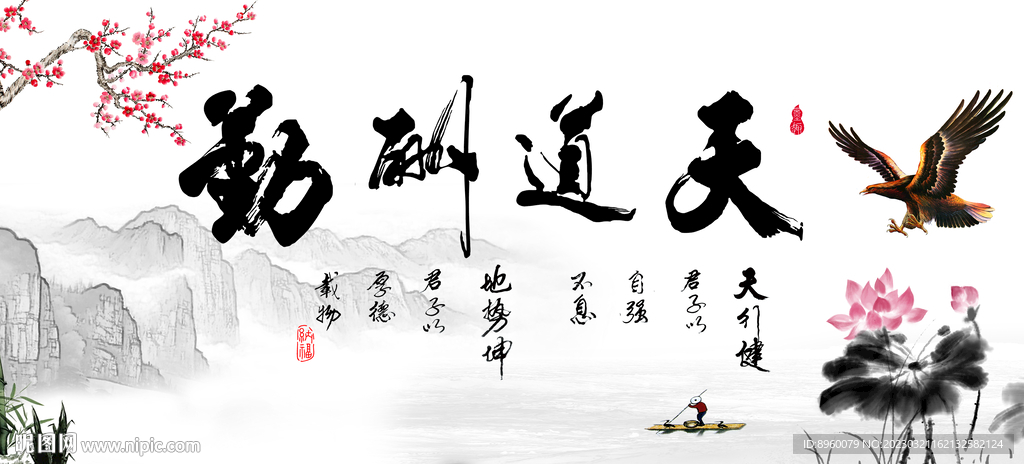 天道酬勤
天行健
君子以
自强
不息
地势坤
君子以
厚德
载物
纳福
昵图网 www.nipic.com
ID:8960079 NO:20230321162132582124